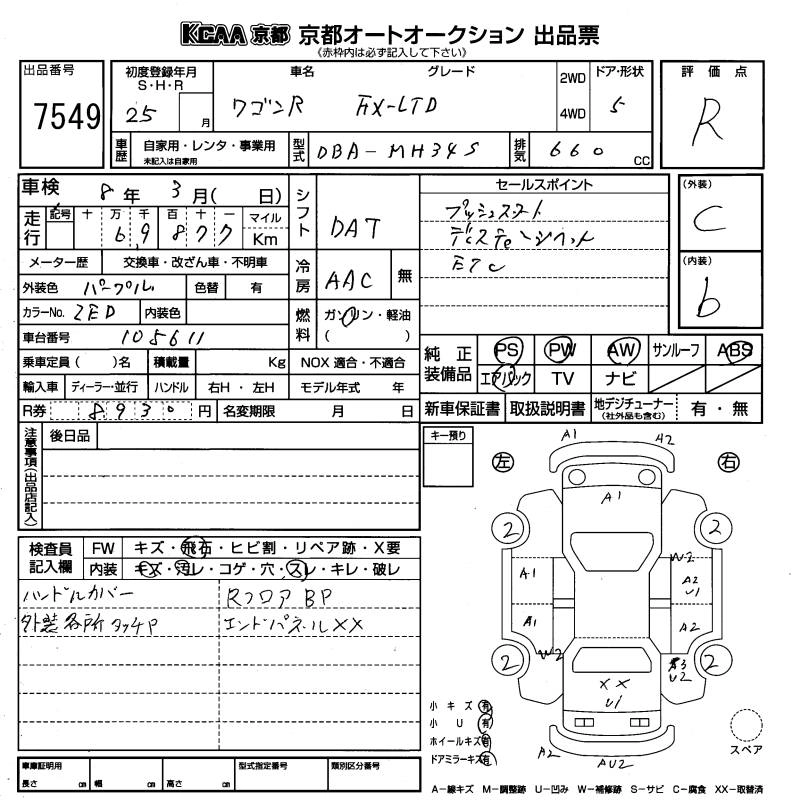 KCAA 京都 京都オートオークション 出品票
《赤枠内は必ず記入して下さい》
出品番号
7549
初度登録年月
S・H・R
25 月
車名 グレード
ワゴンR FX-LTD
2WD
4WD
ドア・形状
5
評価点
R
車歴
自家用・レンタ・事業用
未記入は自家用
型式
DBA-MH34S
排気
660 CC
車検 8年 3月( 日)
走行
記号 十 万 千 百 十 一 マイル
6,9 8 7 7 Km
メーター歴 交換車・改ざん車・不明車
外装色 パープル 色替 有
カラーNo. ZED 内装色
車台番号 105611
乗車定員( )名 積載量 Kg NOX 適合・不適合
輸入車 ディーラー・並行 ハンドル 右H・左H モデル年式 年
R券 8930 円 名変期限 月 日
シフト DAT
冷房 AAC 無
燃料 ガソリン・軽油
( )
セールスポイント
プッシュスタート
ETC
(外装)
C
(内装)
b
純正装備品
PS PW AW サンルーフ ABS
エアバック TV ナビ
新車保証書 取扱説明書 地デジチューナー
(社外品も含む)
有・無
注意事項(出品店記入)
後日品
キー預り
検査員記入欄
FW キズ・飛石・ヒビ割・リペア跡・X要
内装 キズ・汚レ・コゲ・穴・スレ・キレ・破レ
ハンドルカバー RフロアBP
外装各所タッチP エンドパネルXX
左 右
A1 A2
A1
2 2
W2
A1 A2
U1
A1 A2
W2
2 2
U2
XX
U1
A2 AU2
小キズ 有
小U 有
ホイールキズ 有
ドアミラーキズ 有
スペア
車庫証明用
長さ cm 幅 cm 高さ cm
型式指定番号 類別区分番号
A−線キズ M−調整跡 U−凹み W−補修跡 S−サビ C−腐食 XX−取替済